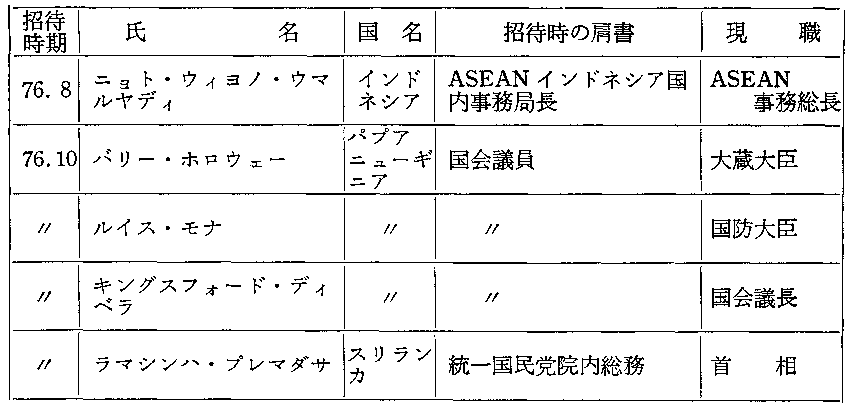 招待時期 氏名 国名 招待時の肩書 現職
76. 8 ニョト・ウィヨノ・ウマルヤディ インドネシア ASEANインドネシア国内事務局長 ASEAN事務総長
76.10 バリー・ホロウェー パプアニューギニア 国会議員 大蔵大臣
〃 ルイス・モナ 〃 〃 国防大臣
〃 キングスフォード・ディベラ 〃 〃 国会議長
〃 ラマシンハ・プレマダサ スリランカ 統一国民党院内総務 首相